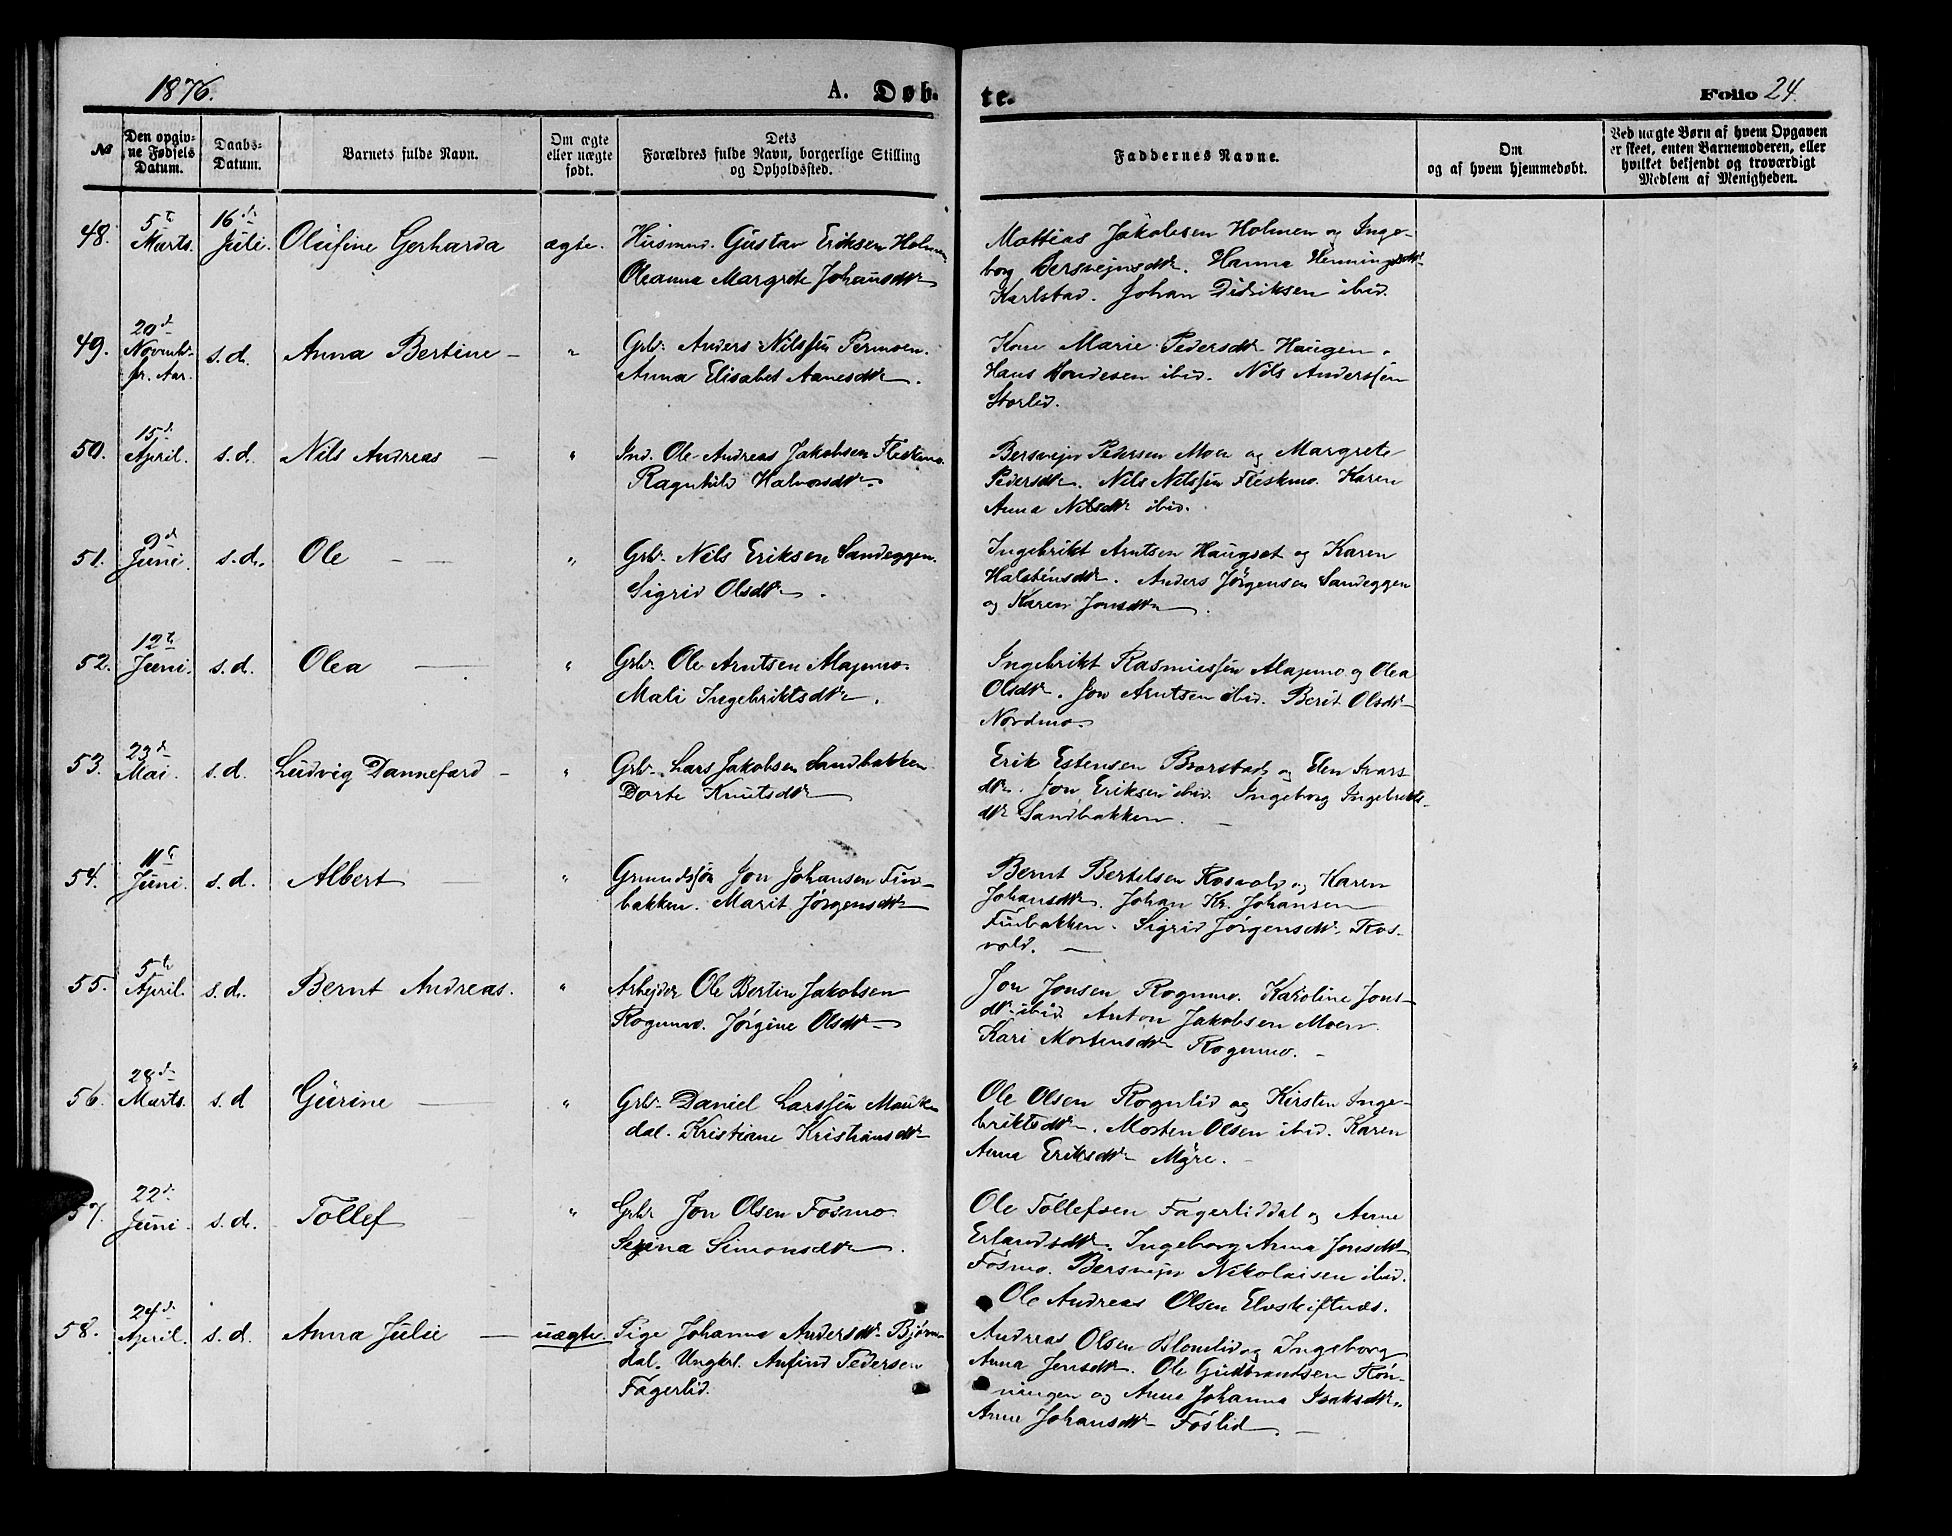 1876.
A. Døb-
te.
Folio 24.
№
Den opgiv-
ne Fødsels
Datum.
Daabs-
Datum.
Barnets fulde Navn.
Om ægte
eller uægte
født.
Dets
Forældres fulde Navn, borgerlige Stilling
og Opholdssted.
Faddernes Navne.
Om
og af hvem hjemmedøbt.
Ved uægte Børn af hvem Opgaven
er skeet, enten Barnemoderen, eller
hvilket bekjendt og troværdigt
Medlem af Menigheden.
48.
5te
Marts.
16de
Juli.
Olufine Gerharda
ægte.
Husmnd. Gustav Eriksen Holmen
Oleanna Margrete Johansdtr
Mattias Jakobsen Holmen og Inge-
borg Bersvejnsdtr. Hanna Henningsdtr
Karlstad. Johan Didriksen ibid.
49.
20de
Novemb.
fr. Aar.
s.d.
Anna Bertine –
"
Grbr. Anders Nilssen Permoen.
Anna Elisabet Aanesdtr.
Kone Marie Pedersdtr Haugen.
Hans ibid. Nils Anderssen
Storlid.
50.
15de
April.
s.d.
Nils Andreas –
"
Ind. Ole Andreas Jakobsen Fleskmo.
Ragnhild Halvorsdtr.
Bersvejn Pedersen Moen og Margrete
Pedersdtr. Nils Nilssen Fleskmo. Karen
Anna Nilsdtr ibid.
51.
9de
Juni.
s.d.
Ole – –
"
Grbr. Nils Eriksen Sandeggen.
Sigrid Olsdtr.
Ingebrikt Arntsen Haugset og Karen
Halstensdtr. Anders Jørgensen Sandeggen
og Karen Jonsdtr.
52.
12te
Juni.
s.d.
Olea –
"
Grbr. Ole Arntsen Alapmo.
Mali Ingebriktsdtr.
Ingebrikt Rasmussen Alapmo og Olea
Olsdtr. Jon Arntsen ibid. Berit Olsdtr
Nordmo.
53.
23de
Mai.
s.d.
Ludvig Dannefærd –
"
Grbr. Lars Jakobsen Sandbakken
Dorte Knutsdtr
Erik Estensen og Elen Ivars-
dtr. Jon Eriksen ibid. Ingeborg Ingebrikts-
dtr Sandbakken. –
54.
11te
Juni.
s.d.
Albert –
"
Grmandssøn Jon Johansen Fin-
bakken. Marit Jørgensdtr
Bernt Bertelsen Rosvold og Karen
Johansdtr. Johan Kr. Johansen
Finbakken. Sigrid Jørgensdtr. Ros-
vold. –
55.
5te
April.
s.d.
Bernt Andreas.
"
Arbejder Ole Bertin Jakobsen
Rognmo. Jørgine Olsdtr
Jon Jonsen Rognmo. Karoline Jons-
dtr ibid. Anton Jakobsen Moen.
Kari Mortensdtr Rognmo. –
56.
28de
Marts.
s.d
Gurine –
"
Grbr. Daniel Larssen Mauk-
dal. Kristiane Kristiansdtr
Ole Olsen Rognlid og Kirsten Inge-
briktsdtr. Morten Olsen ibid. Karen
Anna Eriksdtr Myre. –
57.
22de
Juni.
s.d.
Tollef –
"
Grbr. Jon Olsen Fosmo.
Simonsdtr.
Ole Tollefsen Fagerliddal og Anne
Erlandsdtr. Ingeborg Anna Jonsdtr
Fosmo. Bersvejn Nikolaisen ibid.
Ole Andreas Olsen Elveskiftnæs.
58.
24de
April.
s.d.
Anna Julie –
uægte.
Pige Johanna Andersdtr Bjørn-
dal. Ungkl. Anfind Pedersen
Fagerlid.
Andreas Olsen Blomlid og Ingeborg
Anna Jensdtr. Ole Gudbrandsen Røn-
ningen og Anne Johanna Isaksdtr.
Anne Johansdtr Foslid. –